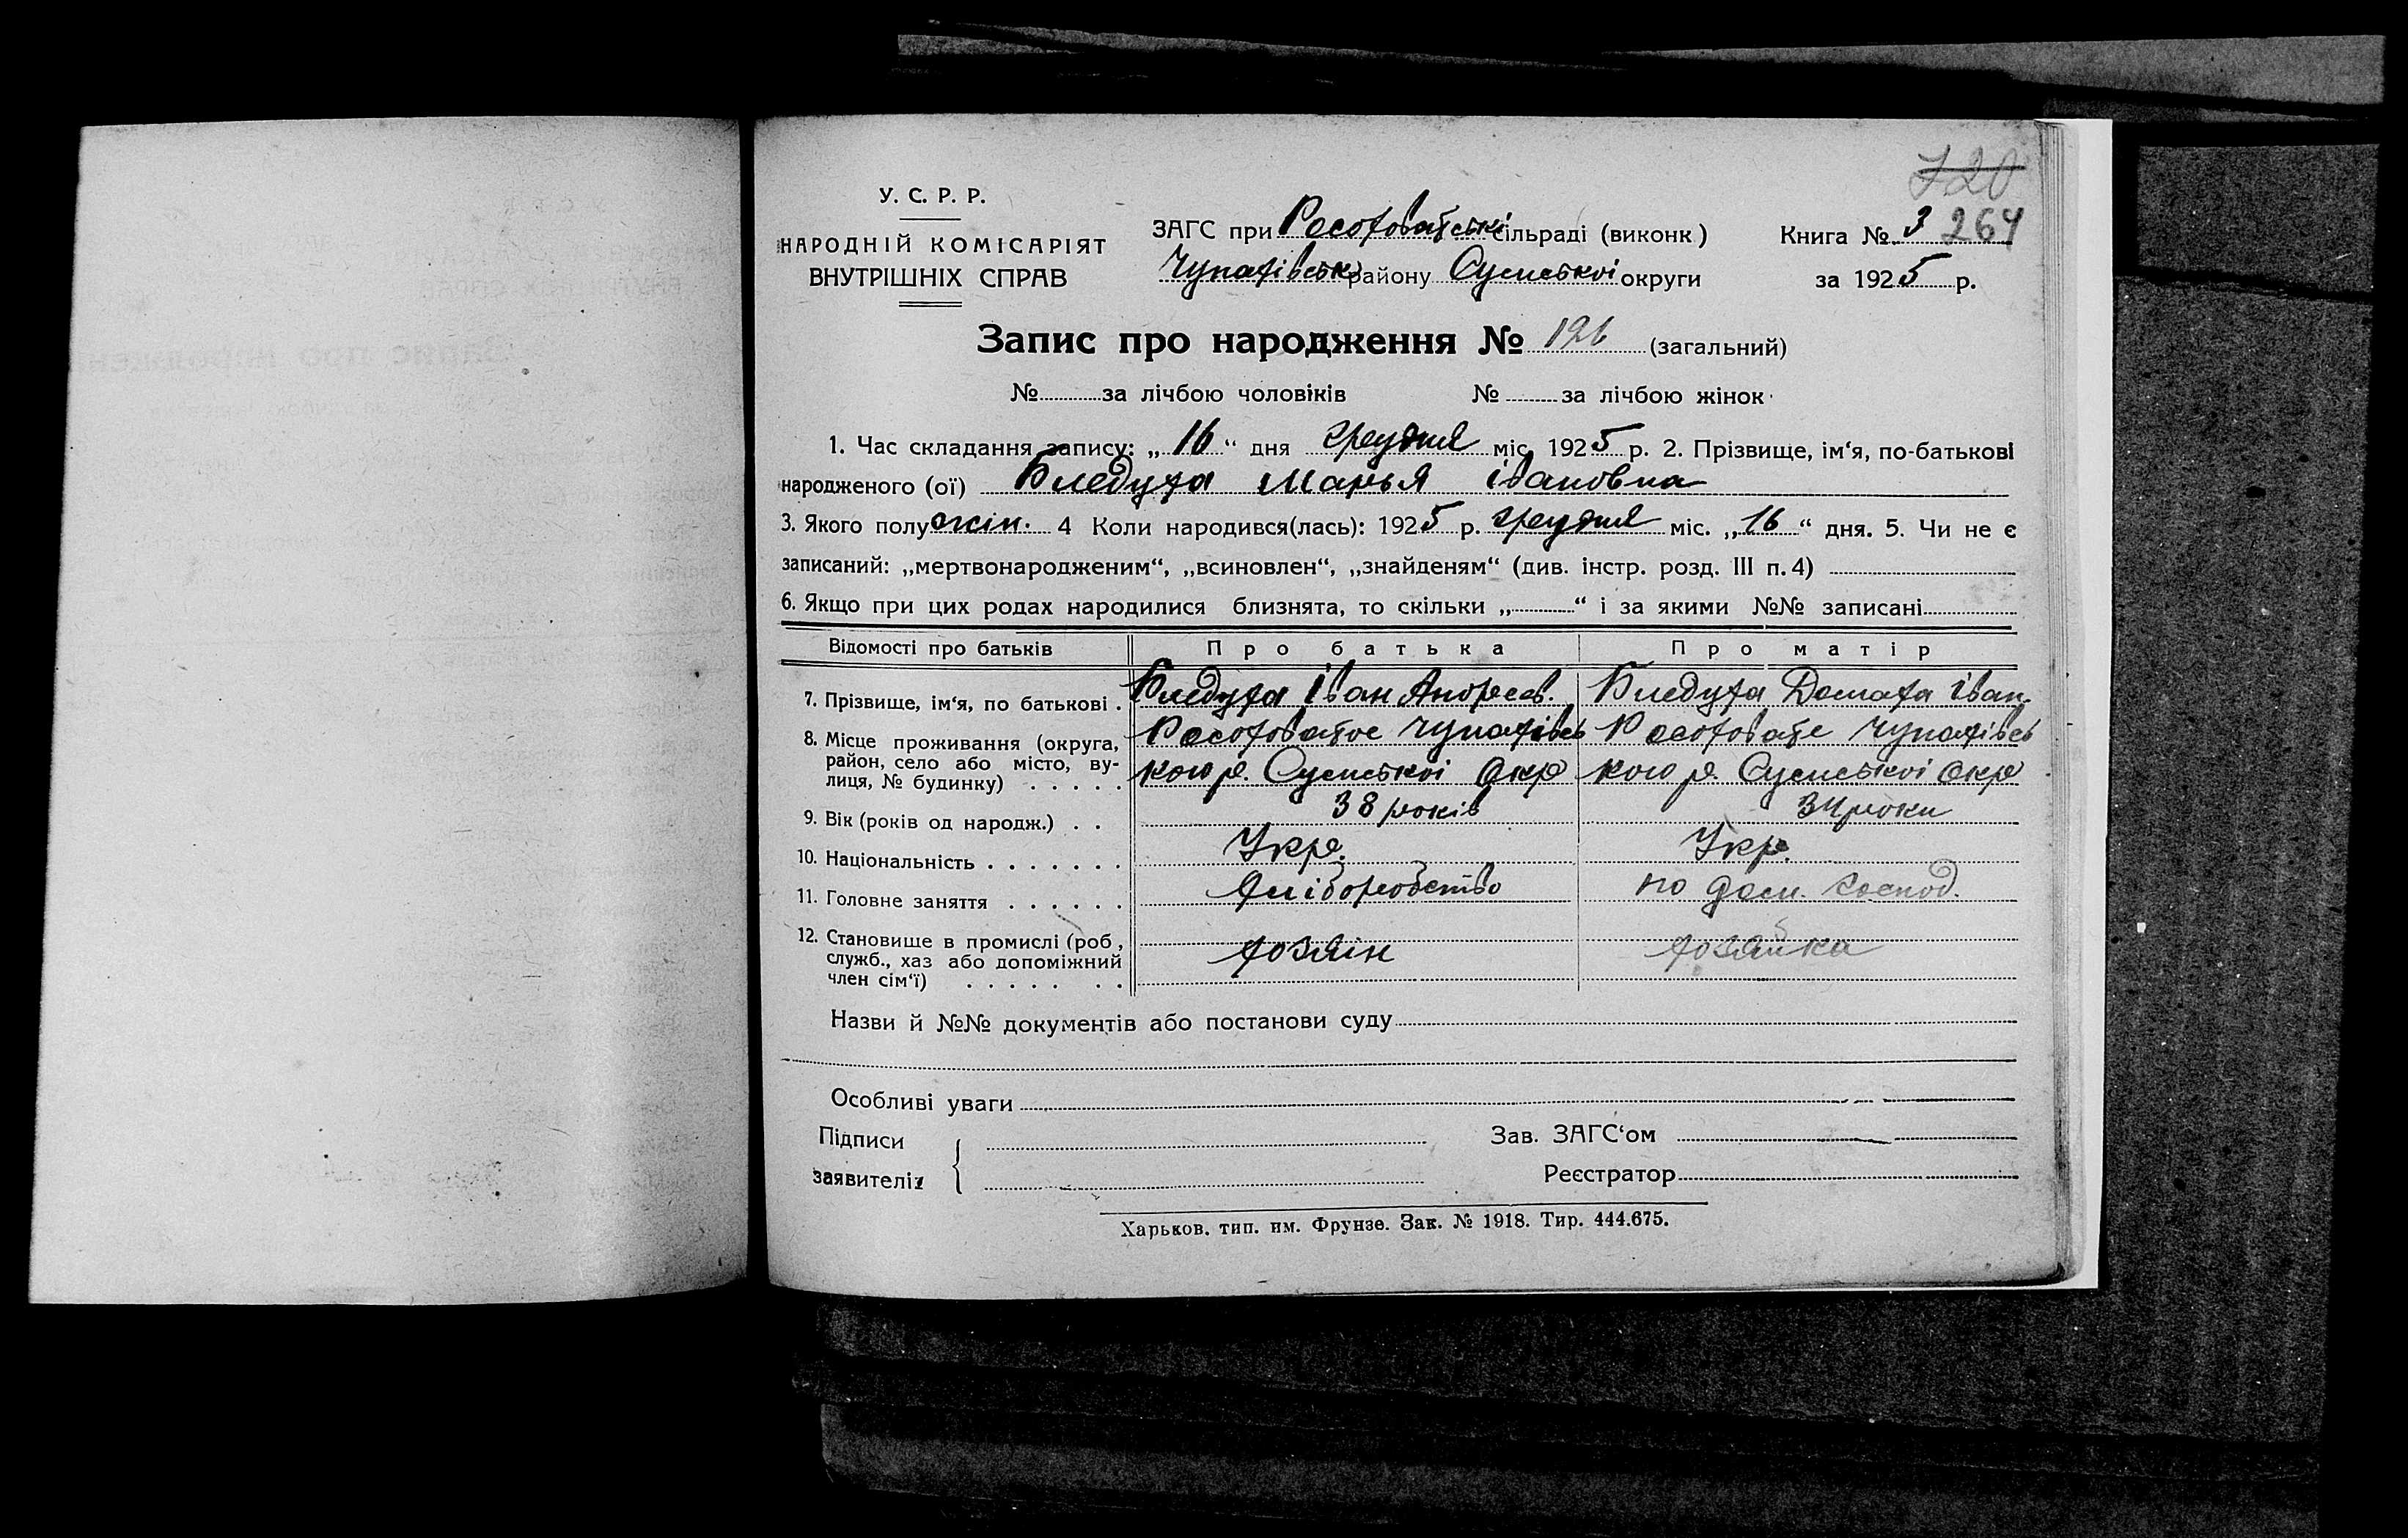 720
У. С. Р. Р.
НАРОДНІЙ КОМІСАРІЯТ
ВНУТРІШНІХ СПРАВ
ЗАГС при Росоховатські сільраді (виконк)
Чупахівськ району Сумської округи
Книга № 3 264
за 1925 р.
Запис про народження № 126 (загальний)
№ за лічбою чоловіків № за лічбою жінок
1. Час складання запису: „16“ дня грудня міс. 1925 р. 2. Прізвище, ім‘я, по-батькові
народженого (ої) Бледуха Марья івановна
3. Якого полу жін. 4 Коли народився(лась): 1925 р. грудня міс. „16“ дня. 5. Чи не є
записаний: „мертвонародженим“, „всиновлен“, „знайденям“ (див. інстр. розд. III п. 4)
6. Якщо при цих родах народилися близнята, то скільки „ “ і за якими №№ записані
Відомості про батьків Про батька Про матір
7. Прізвище, ім‘я, по батькові . Бледуха Іван Андреев. Бледуха Домаха Іван.
8. Місце проживання (округа, район, село або місто, вулиця, № будинку) . . . . . Росоховатое Чупахівського р. Сумської Окр Росоховате Чупахівського р. Сумської Окр
9. Вік (років од народж.) . . 38 років 34 роки
10. Національність . . . . . . . Укр. Укр.
11. Головне заняття . . . . . . Хліборобство по дом. господ.
12. Становище в промислі (роб, служб., хаз або допоміжний член сім‘ї) . . . . . . . хозяін хозяйка
Назви й №№ документів або постанови суду
Особливі уваги
Підписи
заявителів
Зав. ЗАГС‘ом
Реєстратор
Харьков. тип. им. Фрунзе. Зак. № 1918. Тир. 444.675.